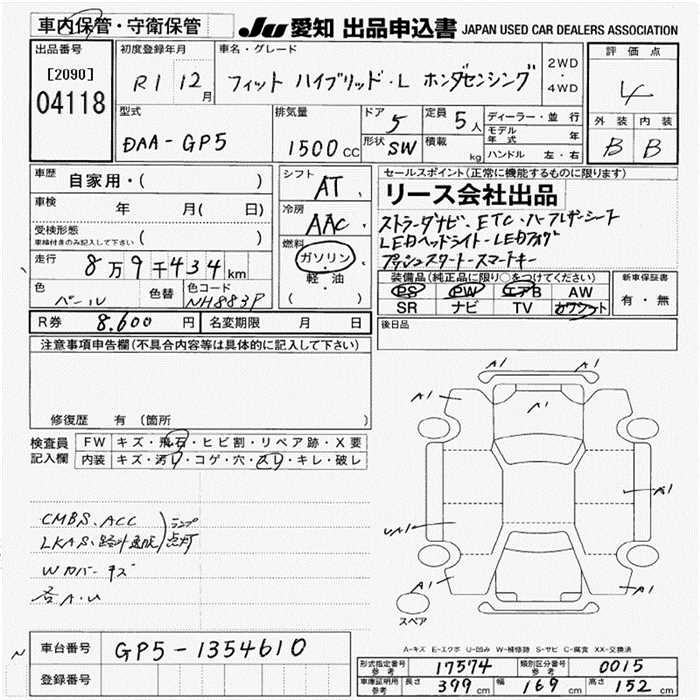 車内保管・守衛保管
JU 愛知 出品申込書 JAPAN USED CAR DEALERS ASSOCIATION
出品番号
[2090]
04118
初度登録年月
R1 12月
車名・グレード
フィット ハイブリッド・L ホンダセンシング
2WD
・
4WD
評価点
4
外装 内装
B B
型式
DAA-GP5
排気量
1500cc
ドア
5
定員
5人
形状
SW
積載
kg
ディーラー・並行
モデル年式 年
ハンドル 左・右
車歴 自家用・( )
車検 年 月( 日)
受検形態
車検付きのみ記入して下さい ( )
走行 8万9千434km
色 パール
色替
色コード
NH883P
シフト
AT
冷房
AAC
燃料
ガソリン
・
軽・油
( )
セールスポイント(正常に機能するものに限ります)
リース会社出品
ストラーダナビ・ETC・ハーフレザーシート
LEDヘッドライト・LEDフォグ
プッシュスタート・スマートキー
装備品(純正品に限り○をつけてください)
PS PW エアB AW
SR ナビ TV カワシート
新車保証書
有・無
後日品
R券 8,600円
名変期限 月 日
注意事項申告欄(不具合内容等は具体的に記入して下さい)
修復歴 有(箇所 )
検査員記入欄
FW キズ・飛石・ヒビ割・リペア跡・X要
内装 キズ・汚れ・コゲ・穴・スレ・キレ・破レ
CMBS、ACC
LKAS・路外逸脱
ランプ点灯
Wカバーキズ
各A・U
A1
A1
A1
A1
A1
A1
A1
スペア
A-キズ E-エクボ U-凹み W-補修跡 S-サビ C-腐食 XX-交換済
車台番号 GP5-1354610
登録番号
形式指定番号 参考 17574
類別区分番号 参考 0015
車庫証明用 参考 長さ 399cm 幅 169cm 高さ 152cm